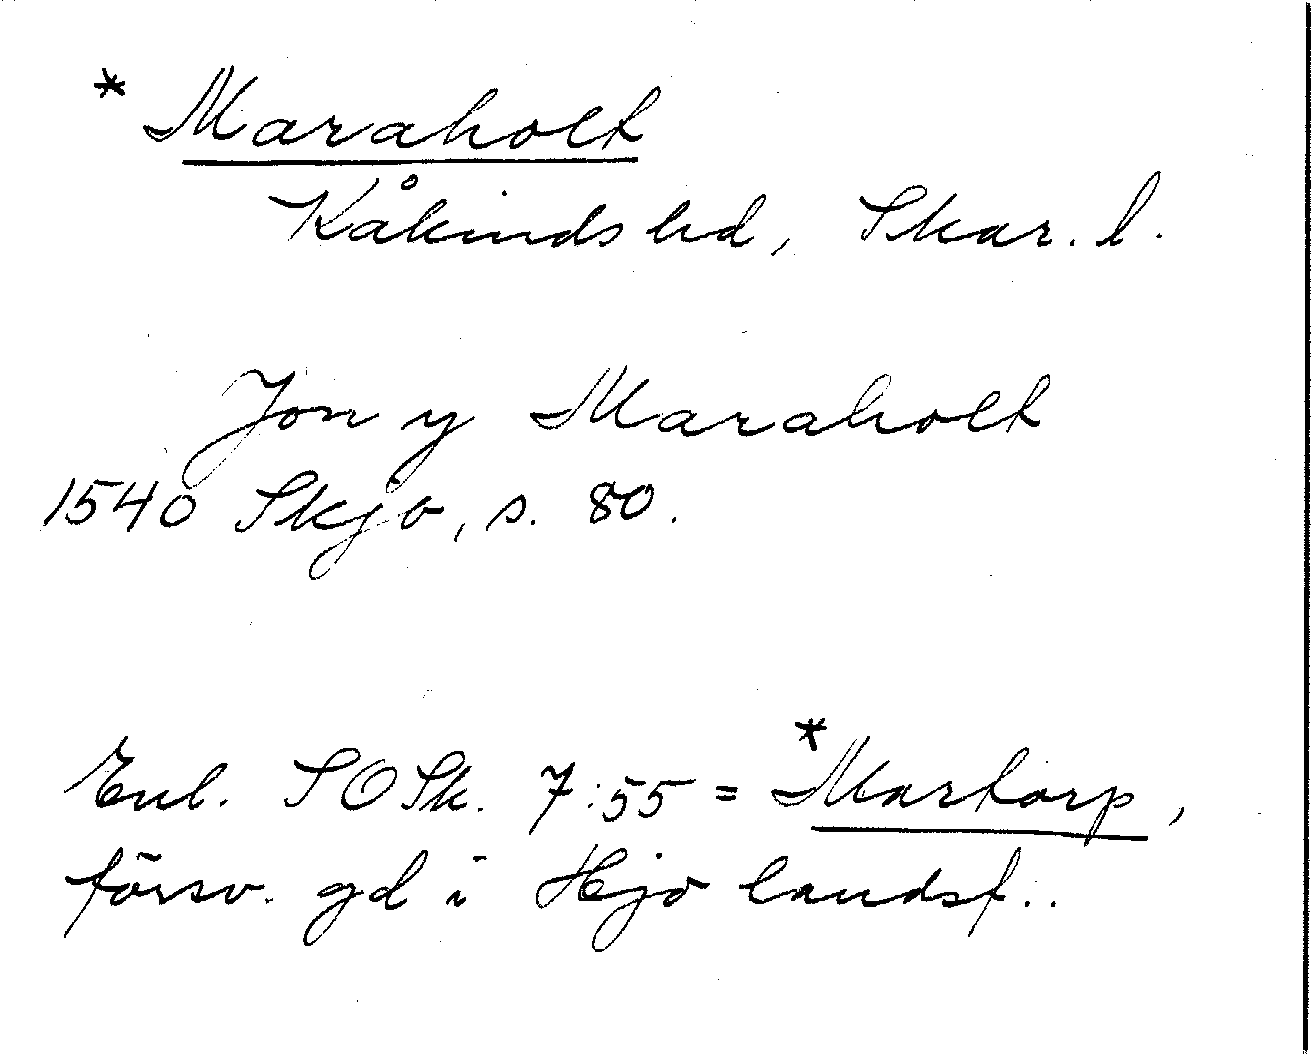 *Maraholt
Kåkinds hd, Skar. l.
Jon y Maraholt
1540 Skjo, s. 80.
Enl. SOSk. 7:55 = *Martorp,
försv. gd i Hjo landsf..